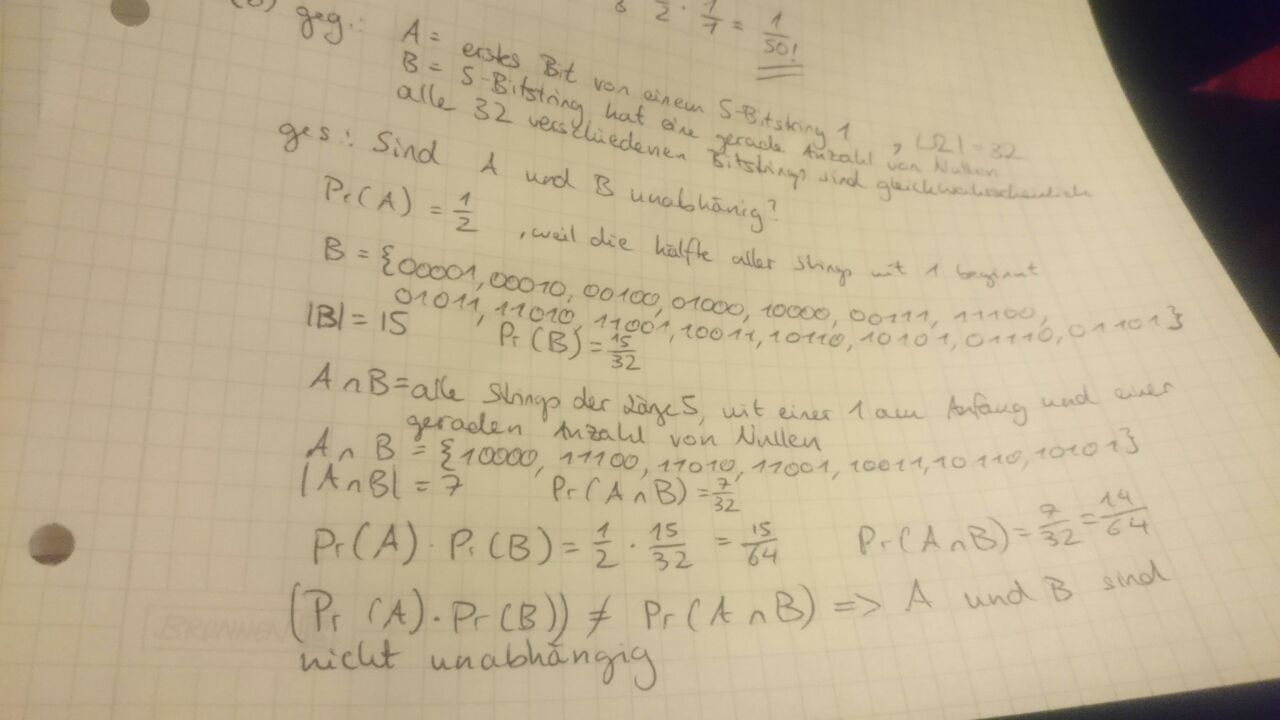 6 1/2 · 1/7 = 1/50!
(b) geg.: A = erstes Bit von einem 5-Bitstring 1 , |Ω| = 32
B = 5-Bitstring hat eine gerade Anzahl von Nullen
alle 32 verschiedenen Bitstrings sind gleichwahrscheinlich
ges.: Sind A und B unabhänig?
Pr(A) = 1/2 , weil die hälfte aller strings mit 1 beginnt
B = {00001, 00010, 00100, 01000, 10000, 00111, 11100,
01011, 11010, 11001, 10011, 10110, 10101, 01110, 01101}
|B| = 15 Pr(B) = 15/32
A ∩ B = alle Strings der Länge 5, mit einer 1 am Anfang und einer
geraden Anzahl von Nullen
A ∩ B = {10000, 11100, 11010, 11001, 10011, 10110, 10101}
|A∩B| = 7 Pr(A ∩ B) = 7/32
Pr(A) · Pr(B) = 1/2 · 15/32 = 15/64 Pr(A∩B) = 7/32 = 14/64
(Pr(A) · Pr(B)) ≠ Pr(A ∩ B) => A und B sind
nicht unabhängig
BRUNNEN